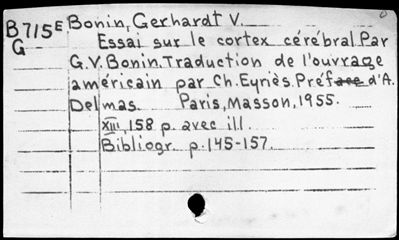 B715E Bonin, Gerhardt V.
G Essai sur le cortex cérébral Par
G.V. Bonin. Traduction de l'ouvrage
américain par Ch. Eyriès. Préface d'A.
Delmas. Paris, Masson, 1955.
XIII, 158 p. avec ill.
Bibliogr. p. 145-157.